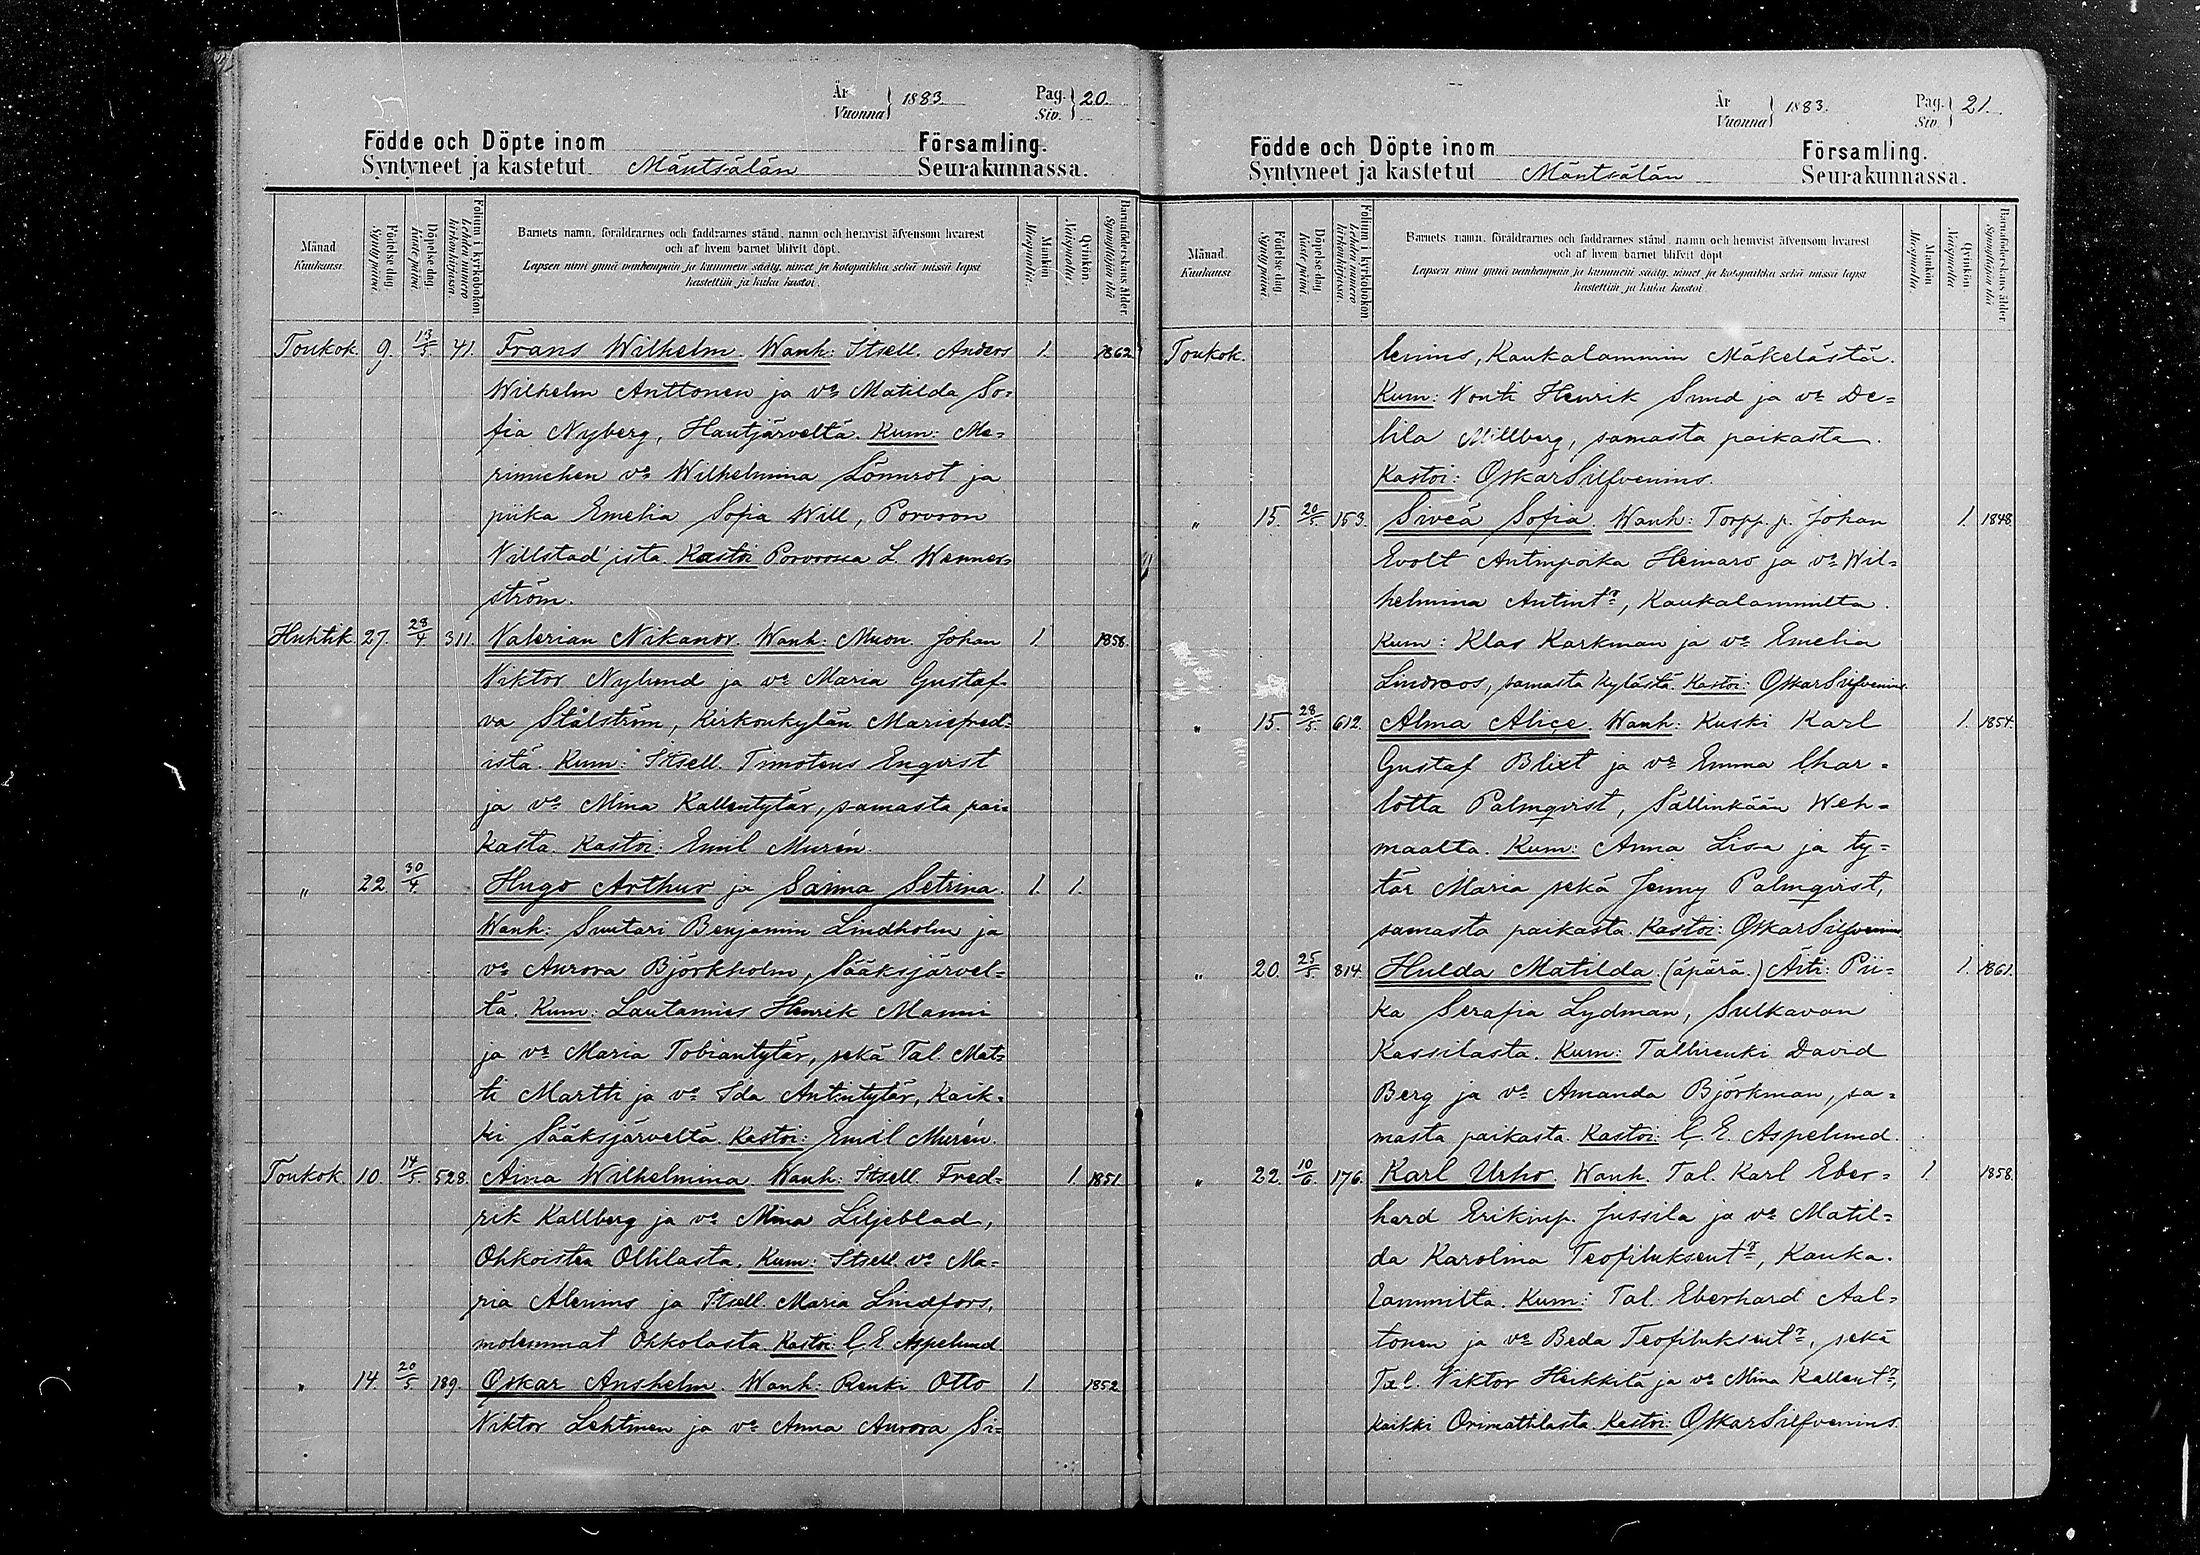 År
Vuonna } 1883. Pag.
Siv. } 20.
Födde och Döpte inom Församling.
Syntyneet ja kastetut Mäntsälän Seurakunnassa.
Månad. Kuukausi.
Födelse dag. Synty päivä.
Döpelse dag. Kaste päivä.
Folium i kyrkoboken. Lehden numero kirkonkirjassa.
Barnets namn, föräldrarnes och faddrarnes stånd, namn och hemvist äfvensom hvarest
och af hvem barnet blifvit döpt.
Lapsen nimi ynnä vanhempain ja kummein sääty, nimet ja kotopaikka sekä missä lapsi
kastettiin ja kuka kastoi.
Mankön. Miespuolia.
Qvinkön. Naispuolia.
Barnaföderskans ålder. Synnyttäjän ikä
Toukok. 9. 13/5 41. Frans Wilhelm. Wanh: Itsell. Anders 1. 1862
Wilhelm Anttonen ja vo Matilda So=
fia Nyberg, Hautjärveltä. Kum: Me=
rimiehen vo Wilhelmina Lönnrot ja
piika Emelia Sofia Will, Porvoon
Villstad'ista. Kastoi Porvoossa L. Wenner=
ström.
Huhtik. 27. 28/4 311. Valerian Nikanor. Wanh: Muon. Johan 1. 1858.
Viktor Nylund ja vo Maria Gustaf-
va Stålström, Kirkonkylän Mariefred=
istä. Kum: Itsell. Timoteus Enqvist
ja vo Mina Kallentytär, samasta pai=
kasta. Kastoi: Emil Murén.
„ 22 30/4. Hugo Arthur ja Saima Setrina. 1. 1.
Wanh: Suutari Benjamin Lindholm ja
vo Aurora Björkholm, Sääksjärvel=
tä. Kum: Lautamies Henrik Manni
ja vo Maria Tobiantytär, sekä Tal. Mat=
ti Martti ja vo Ida Antintytär, Kaik=
ki Sääksjärveltä. Kastoi: Emil Murén.
Toukok. 10. 14/5 528. Aina Wilhelmina. Wanh: Itsell. Fred= 1. 1851.
rik Kallberg ja vo Mina Liljeblad,
Ohkoisten Ollilasta. Kum: Itsell. vo Ma=
ria Alenius ja Itsell. Maria Lindfors,
molemmat Ohkolasta. Kastoi: C. E. Aspelund
„ 14. 20/5 189. Oskar Anshelm. Wanh: Renki Otto 1. 1852
Viktor Lehtinen ja vo Anna Aurora Si=
År
Vuonna } 1883. Pag.
Siv. } 21.
Födde och Döpte inom Församling.
Syntyneet ja kastetut Mäntsälän Seurakunnassa.
Månad. Kuukausi.
Födelse dag. Synty päivä.
Döpelse dag. Kaste päivä.
Folium i kyrkoboken. Lehden numero kirkonkirjassa.
Barnets namn, föräldrarnes och faddrarnes stånd, namn och hemvist äfvensom hvarest
och af hvem barnet blifvit döpt
Lapsen nimi ynnä vanhempain ja kummein sääty, nimet ja kotopaikka sekä missä lapsi
kastettiin ja kuka kastoi.
Mankön. Miespuolia.
Qvinkön. Naispuolia.
Barnaföderskans ålder. Synnyttäjän ikä
Toukok. lenius, Kaukalammin Mäkelästä.
Kum: Vouti Henrik Sund ja vo De=
lila Millberg, samasta paikasta.
Kastoi: Oskar Silfvenius.
„ 15. 20/5. 153. Siveä Sofia. Wanh: Torpp. p. Johan 1. 1848
Evolt Antinpoika Heinaro ja vo Wil=
helmina Antintr, Kaukalammilta.
Kum: Klas Karkman ja vo Emelia
Lindroos, samasta kylästä. Kastoi: Oskar Silfvenius.
„ 15. 28/5. 612. Alma Alice. Wanh: Kuski Karl 1. 1854.
Gustaf Blixt ja vo Emma Char=
lotta Palmqvist, Sällinkään Weh=
maalta. Kum: Anna Lisa ja ty=
tär Maria sekä Jenny Palmqvist,
samasta paikasta. Kastoi: Oskar Silfvenius
„ 20. 25/5 814. Hulda Matilda. (äpärä.) Äiti: Pii= 1. 1861.
ka Serafia Lydman, Sulkavan
Kassilasta. Kum: Tallirenki David
Berg ja vo Amanda Björkman, sa=
masta paikasta. Kastoi: C. E. Aspelund.
„ 22. 10/6. 176. Karl Urho. Wanh. Tal. Karl Eber= 1. 1858.
hard Erikinp. Jussila ja vo Matil=
da Karolina Teofiluksentr, Kauka-
lammilta. Kum: Tal. Eberhard Aal=
tonen ja vo Beda Teofiluksentr, sekä
Tal. Viktor Heikkilä ja vo Mina Kallentr,
kaikki Orimattilasta. Kastoi: Oskar Silfvenius.